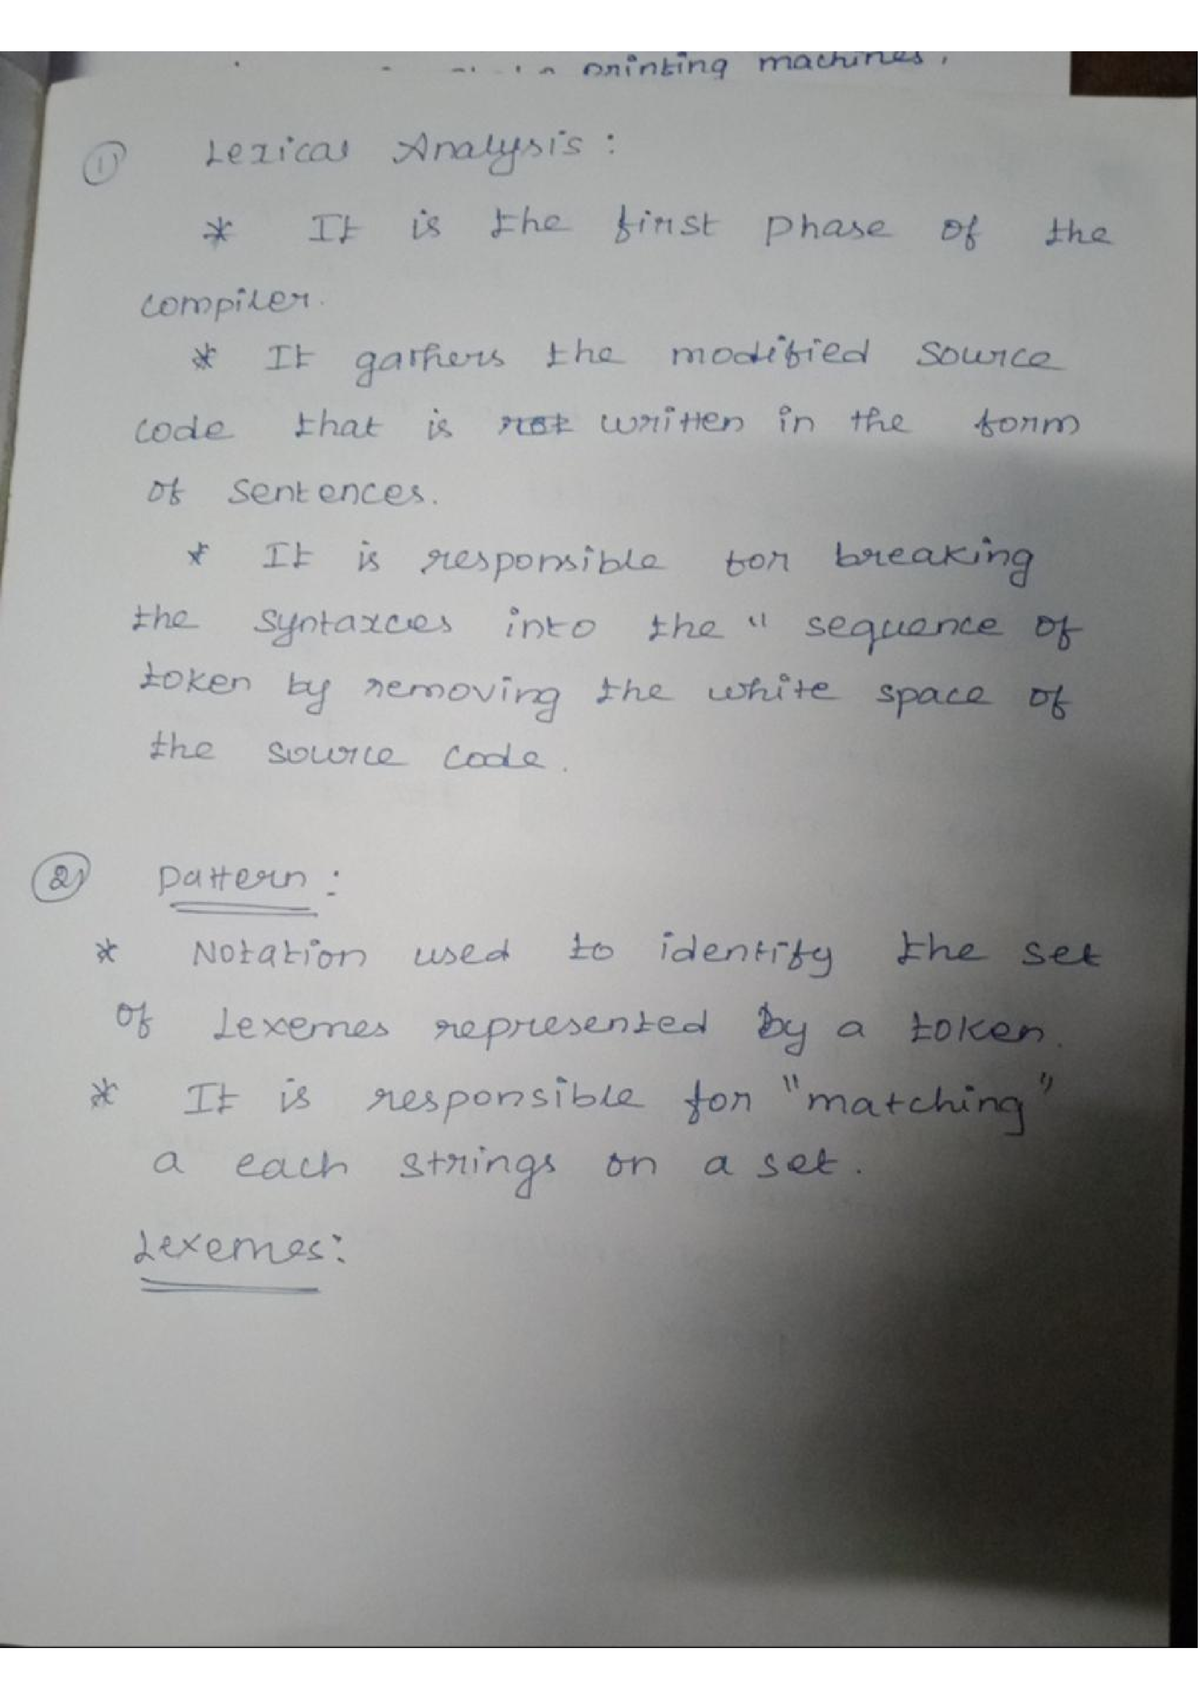 printing machines.
① Lexical Analysis:
* It is the first phase of the
compiler.
* It gathers the modified source
code that is not written in the form
of sentences.
* It is responsible for breaking
the syntaxces into the " sequence of
token by removing the white space of
the source code.
② Pattern:
* Notation used to identify the set
of Lexemes represented by a token.
* It is responsible for "matching"
a each strings on a set.
Lexemes: